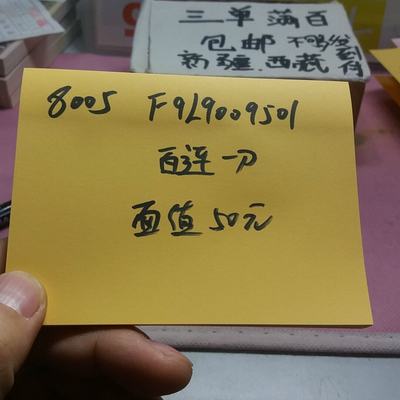 三单满百
包邮
新疆.西藏
8005 F9L9009501
百连一刀
面值50元